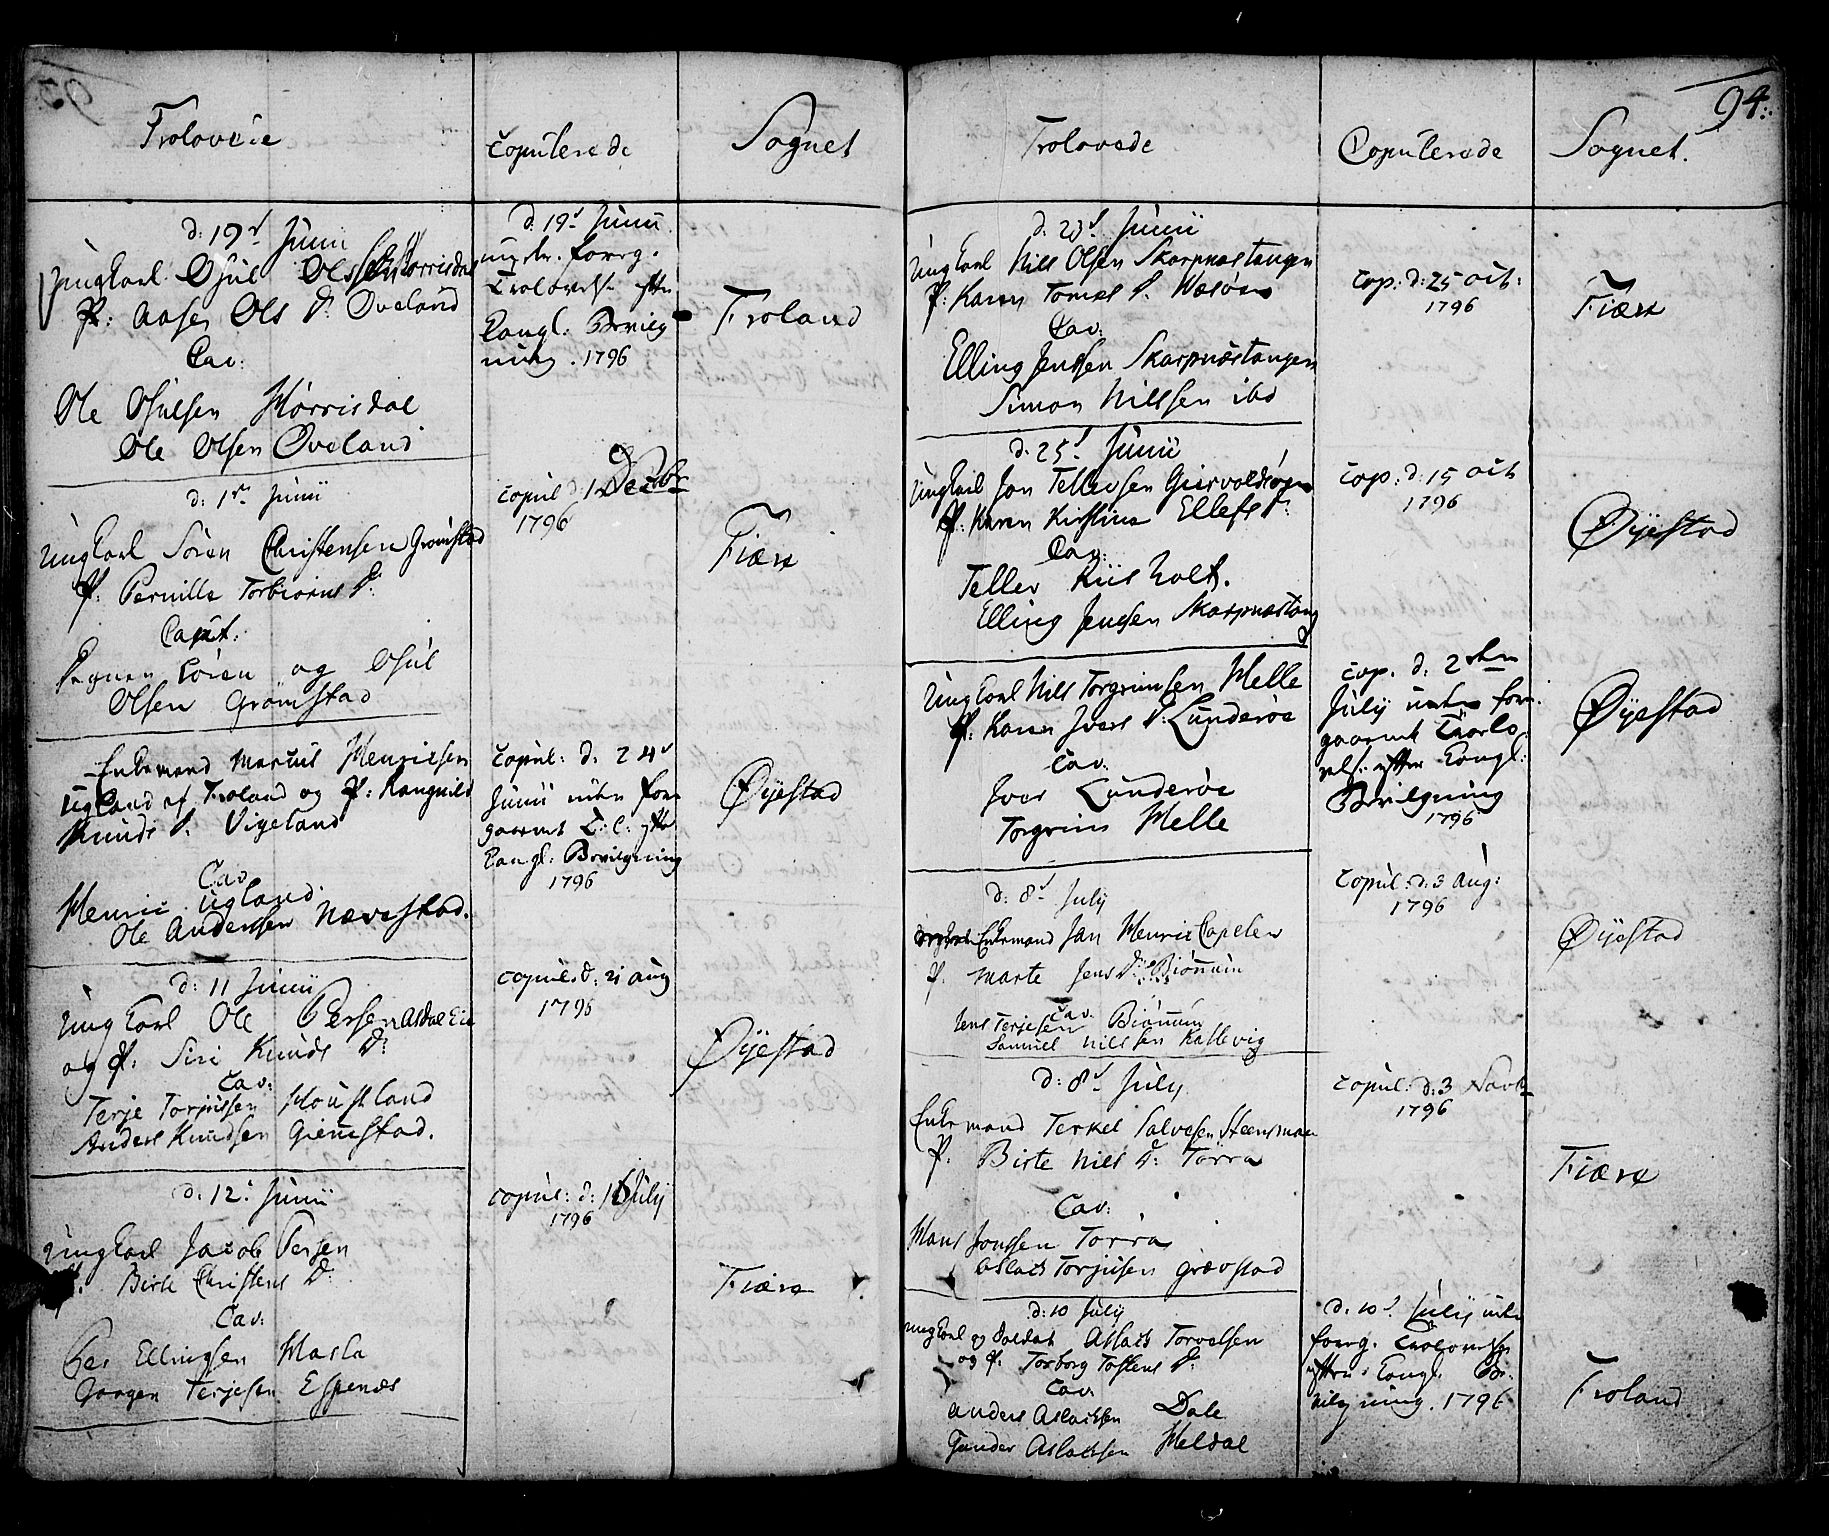 93.
Trolovede
Copulerede
Sognet
d: 19d Junii
Ungkarl Osul Olsen Mörrisdal
P: Aasen Ols D. Öveland
Cav:
Ole Osulsen Mörrisdal
Ole Olsen Öveland
d: 19d Junii
uden foreg.
Trolovelse efter
Cangl: Bevilg
ning. 1796
Froland
d: 1ste Junii
Ungkarl Sören Christensen Grömstad
P: Pernille Torbiörns D:
Caut:
Sören og Osul
Olsen Grömstad
copul d: 1 Decbr
1796
Fiære
Enkemand Marcus Henricsen
Ugland af Froland og P: Rangnild
Knuds D. Vigeland
Cav
Henric Ugland
Ole Andersen Nævestad.
Copul: d: 24d
Junii uden fore
gaaend T: l: efter
Cangl: Bevilgning
1796
Øyestad
d: 11 Junii
Ungkarl Ole Persen Asdal Eie
og P: Siri Knuds D:
Cav:
Terje Torjusen Mourland
Anders Knudsen Giennestad.
copul. d: 21 aug
1796
Øyestad
d: 12. Junii
Ungkarl Jacob Persen
P. Birte Christens D:
Cav:
Per Ellingsen Hasla
Jörgen Terjesen Espenes
copul: d: 16 July
1796
Fiære
94.
Trolovede
Copulerede
Sognet.
d. 23d Junii
Ungkarl Nils Olsen Skarpnæstangen
P: Karen Tomes D. Hæsöen
Cav:
Elling Jensen Skarpnæstangen
Simon Nilsen ibd
cop: d: 25 Oct:
1796
Fiære
d. 25d Junii
Ungkarl Jon Tellefsen Giervoldsöen
P: Karen Kirstine Ellefs D:
Cav:
Tellev Kiisholt.
Elling Jensen Skarpnæstang
cop: d: 15 Oct
1796
Øyestad
Ungkarl Nils Torgrimsen Helle
P. Karen Ivers D: Lunderöe
Cav.
Iver Lunderöe
Torgrim Helle
cop. d. 2den
July uden fore
gaaende Trolo
velse efter Cangl:
Bevilgning
1796
Øyestad
d: 8d July
Enkemand Jan Henric Capelen
P. Marte Jens D: Biönnum
Cav.
Jens Terjesen Biönnum
Samuel Nilsen Kallevig
copul: d: 3 Aug:
1796
Øyestad
d: 8d July
Enkemand Terkel Salvesen Steensmoen
P. Birte Nils D: Torra
Cav:
Hans Jonsen Torra
Aslach Torjusen Grævstad
copul: d: 3 Novbr
1796
Fiære
d: 10 July
Ungkarl og Soldat Aslach Torvelsen
og P. Torborg Tostens D:
Cav.
Anders Aslachsen Dale
Gunder Aslachsen Heldal
d. 10d July uden
foreg. Trolovelse
efter Cangl. Be
vilgning. 1796
Froland